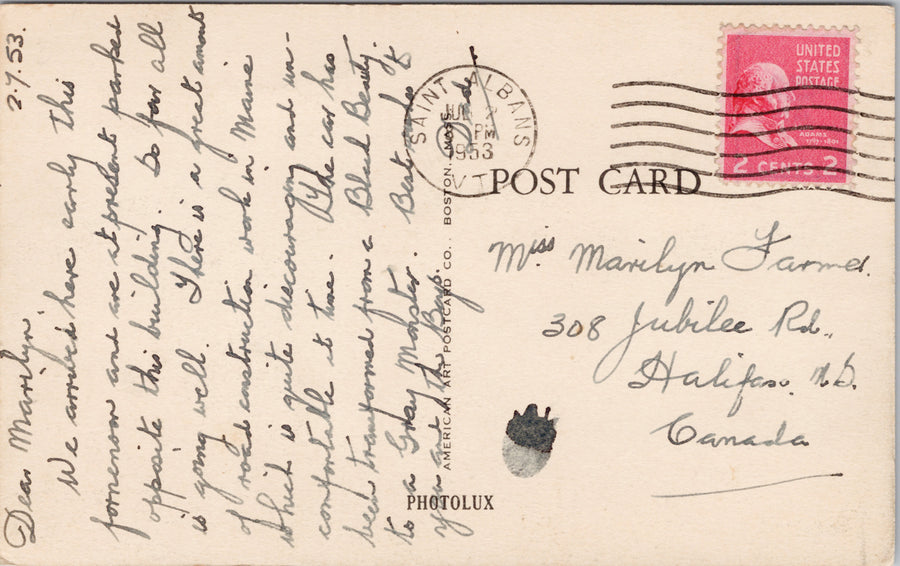 2.7.53.
Dear Marilyn,
We arrived here early this
forenoon and are at present parked
opposite this building. So far all
is going well. There is a great amount
of road construction work in Maine
which is quite discouraging and un-
comfortable at time. The car has
been transformed from a Black Beauty
to a Gray Monster. Best wishes to
you and the Boys.
AMERICAN ART POSTCARD CO., BOSTON, MASS.
PHOTOLUX
SAINT ALBANS
2
PM
1953
VT
UNITED
STATES
POSTAGE
ADAMS
1797-1801
2 CENTS 2
POST CARD
Miss Marilyn Farmer.
308 Jubilee Rd.,
Halifax. N.S.
Canada